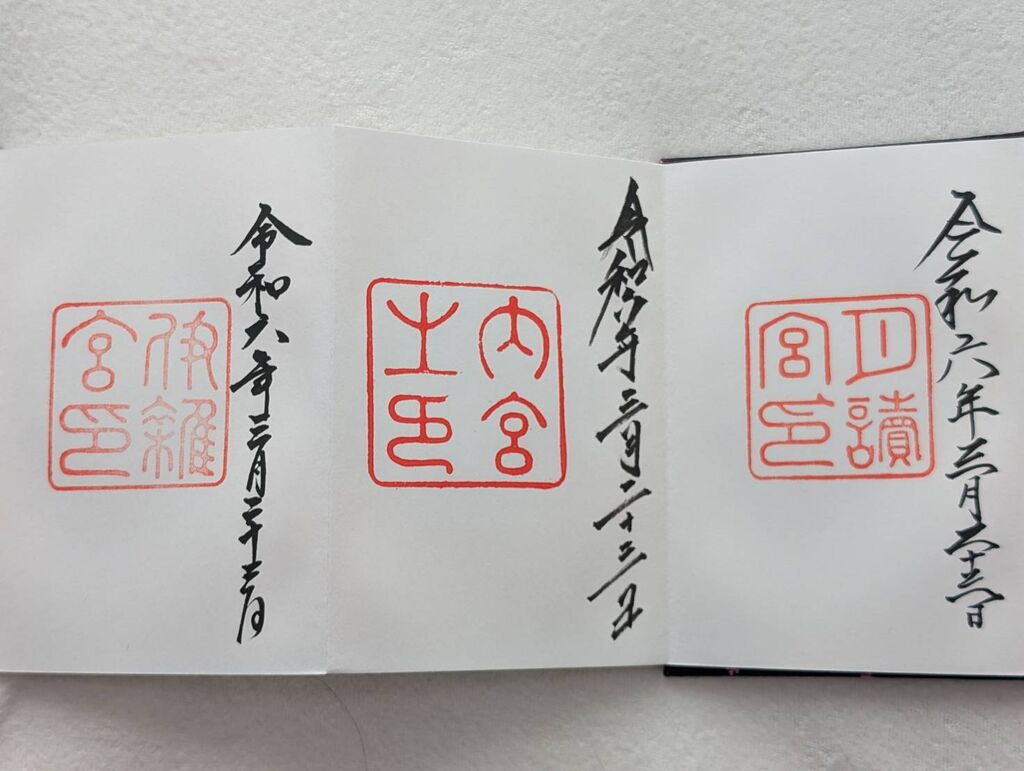 令和六年三月二十三日
月讀
宮印
令和六年三月二十三日
内宮
之印
令和六年三月二十三日
伊雜
宮印